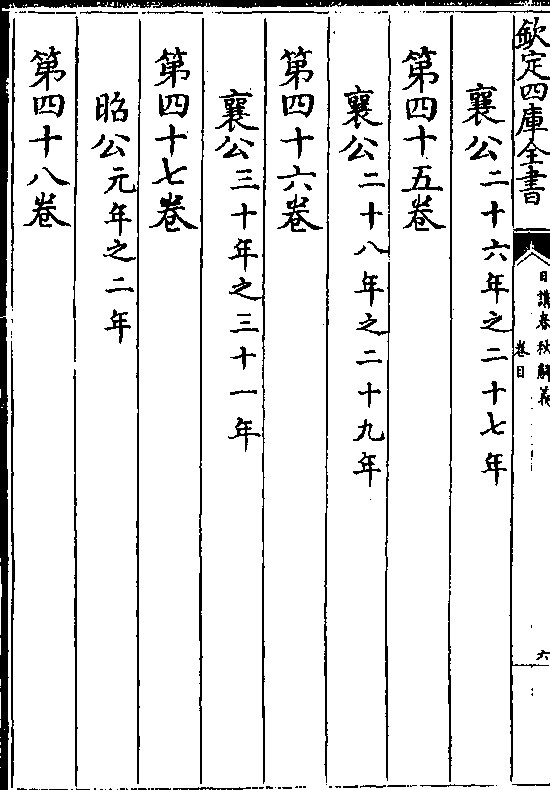 欽定四庫全書
日講春秋解義
卷目
六
襄公二十六年之二十七年
第四十五卷
襄公二十八年之二十九年
第四十六卷
襄公三十年之三十一年
第四十七卷
昭公元年之二年
第四十八卷